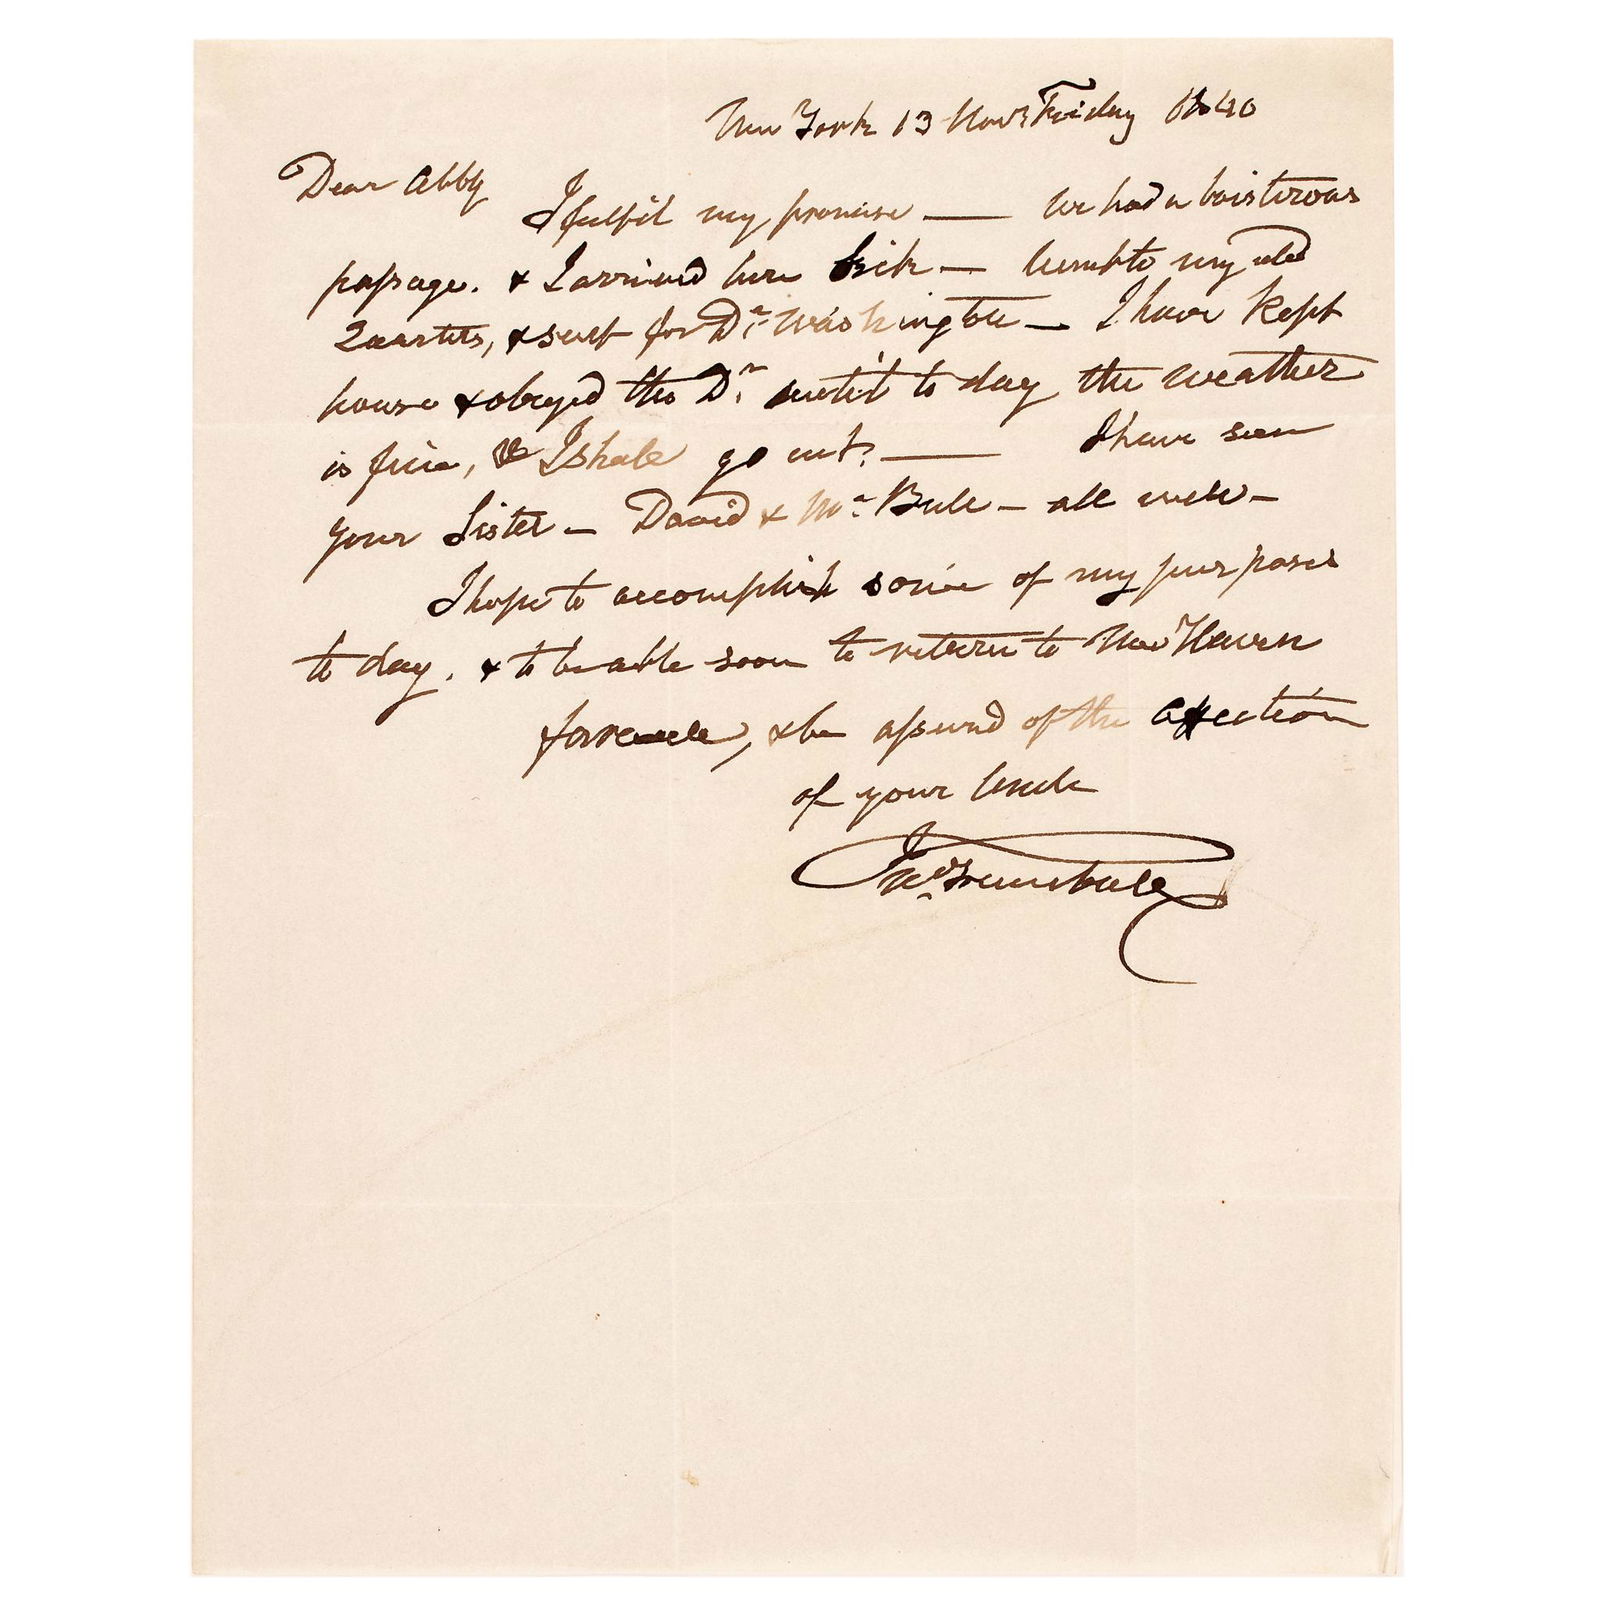 New York 13 Novr Friday 1840
Dear Abby
I fulfil my promise — We had a boisterous
passage. & I arrived here Sick — Went to my old
Quarters, & sent for Dr. Washington — I have kept
house & obeyed the Dr. until to day the weather
is fine, & I shall go out. — I have seen
your Sister — David & Mr. Bull — all well —
I hope to accomplish some of my purposes
to day. & to be able soon to return to New Haven
farewell, & be assured of the affection
of your Uncle
Jno Trumbull